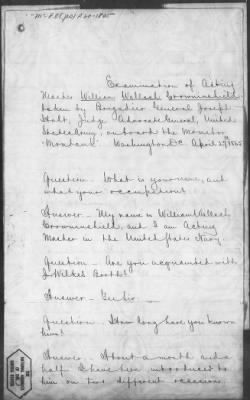 Examination of Acting
Master William Wallach Crowninshield
taken by Brigadier General Joseph
Holt, Judge Advocate General, United
States Army, on board the Monitor
"Montauk" Washington D.C. April 27th 1865
Question. What is your name, and
what your occupation?
Answer. My name is William Wallach
Crowninshield, and I am Acting
Master in the United States Navy.
Question. Are you acquainted with
J. Wilkes Booth?
Answer. Yes sir.
Question. How long have you known
him?
Answer. About a month and a
half. I have been introduced to
him on two different occasions.